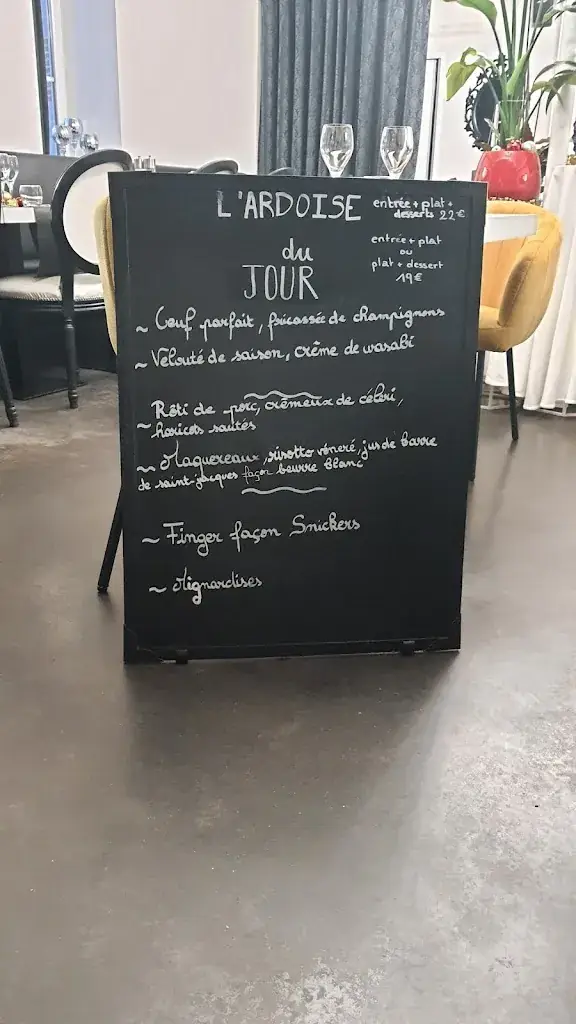 L'ARDOISE
du
JOUR
entrée + plat +
desserts 22€
entrée + plat
ou
plat + dessert
19€
~ Oeuf parfait, fricassée de champignons
~ Velouté de saison, crème de wasabi
~ Rôti de porc, crèmeux de céleri,
haricots sautés
~ Maquereaux, risotto vénéré, jus de barre
de saint-jacques façon beurre blanc
~ Finger façon Snickers
~ Mignardises